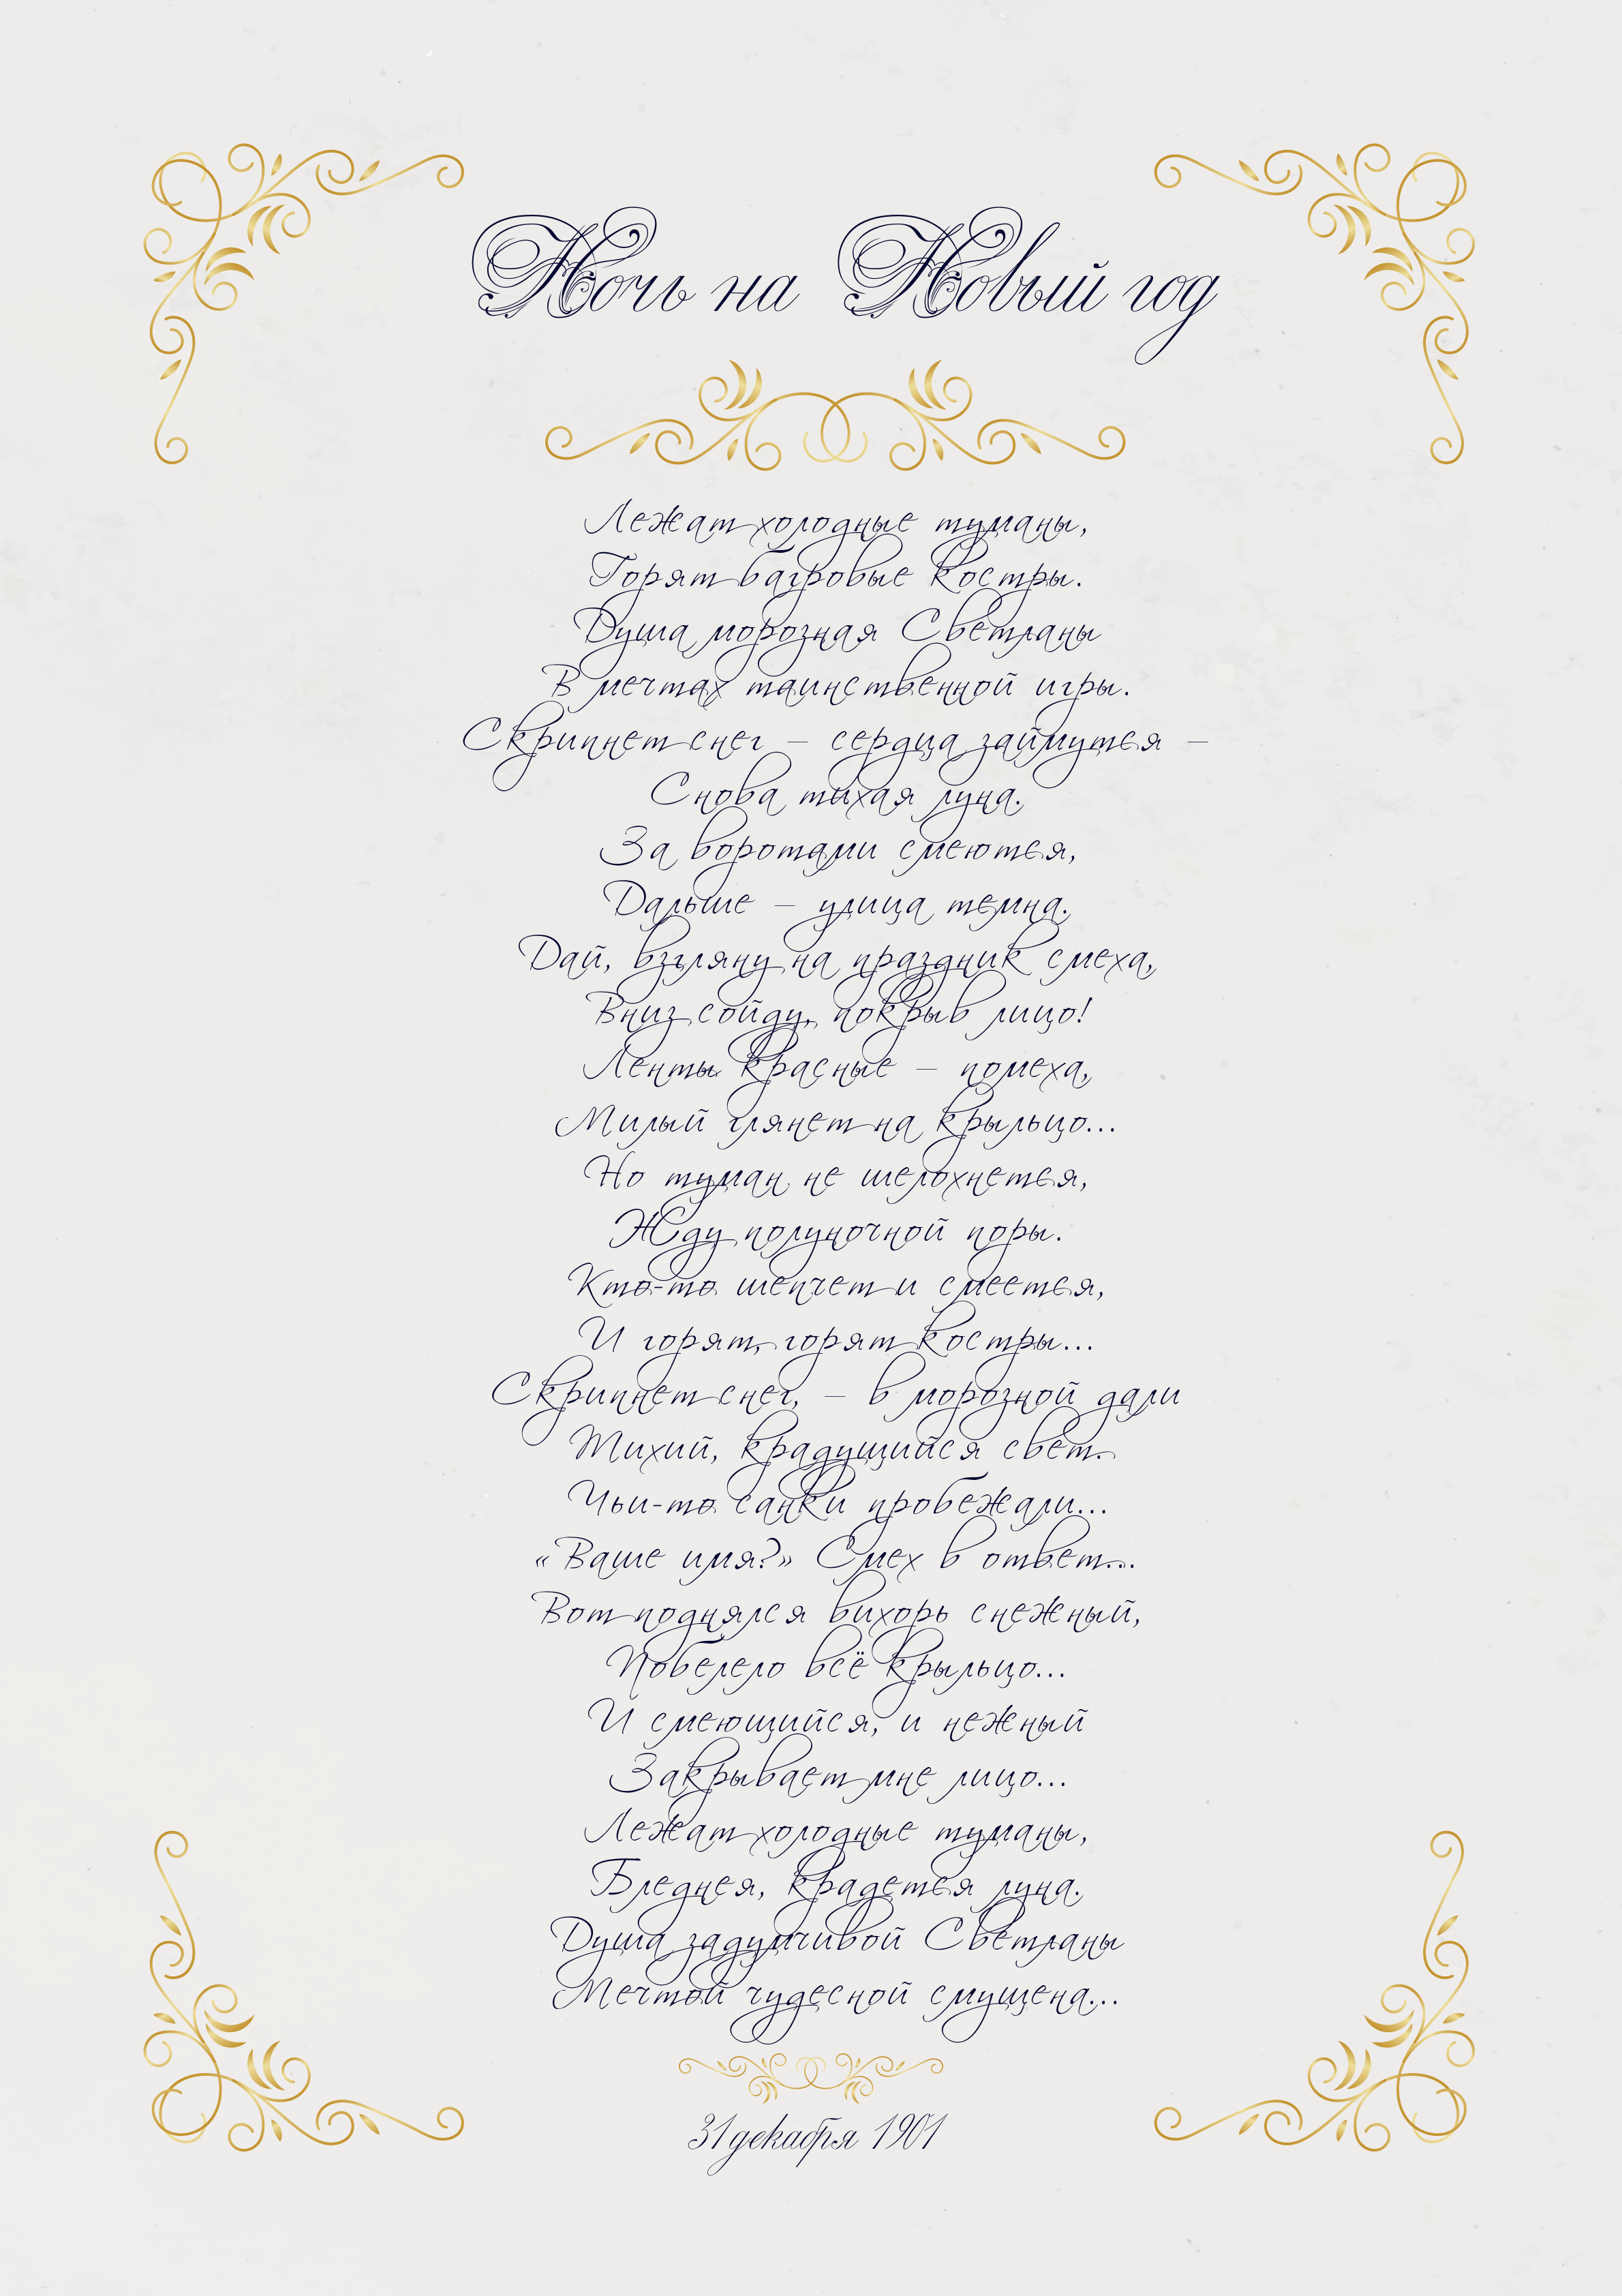 Ночь на Новый год
Лежат холодные туманы,
Горят багровые костры.
Душа морозная Светланы
В мечтах таинственной игры.
Скрипнет снег – сердца займутся –
Снова тихая луна.
За воротами смеются,
Дальше – улица темна.
Дай, взгляну на праздник смеха,
Вниз сойду, покрыв лицо!
Ленты красные – помеха,
Милый глянет на крыльцо...
Но туман не шелохнется,
Жду полуночной поры.
Кто-то шепчет и смеется,
И горят, горят костры...
Скрипнет снег, – в морозной дали
Тихий, крадущийся свет.
Чьи-то санки пробежали...
«Ваше имя?» Смех в ответ...
Вот поднялся вихорь снежный,
Побелело всё крыльцо...
И смеющийся, и нежный
Закрывает мне лицо...
Лежат холодные туманы,
Бледнея, крадется луна.
Душа задумчивой Светланы
Мечтой чудесной смущена...
31 декабря 1901